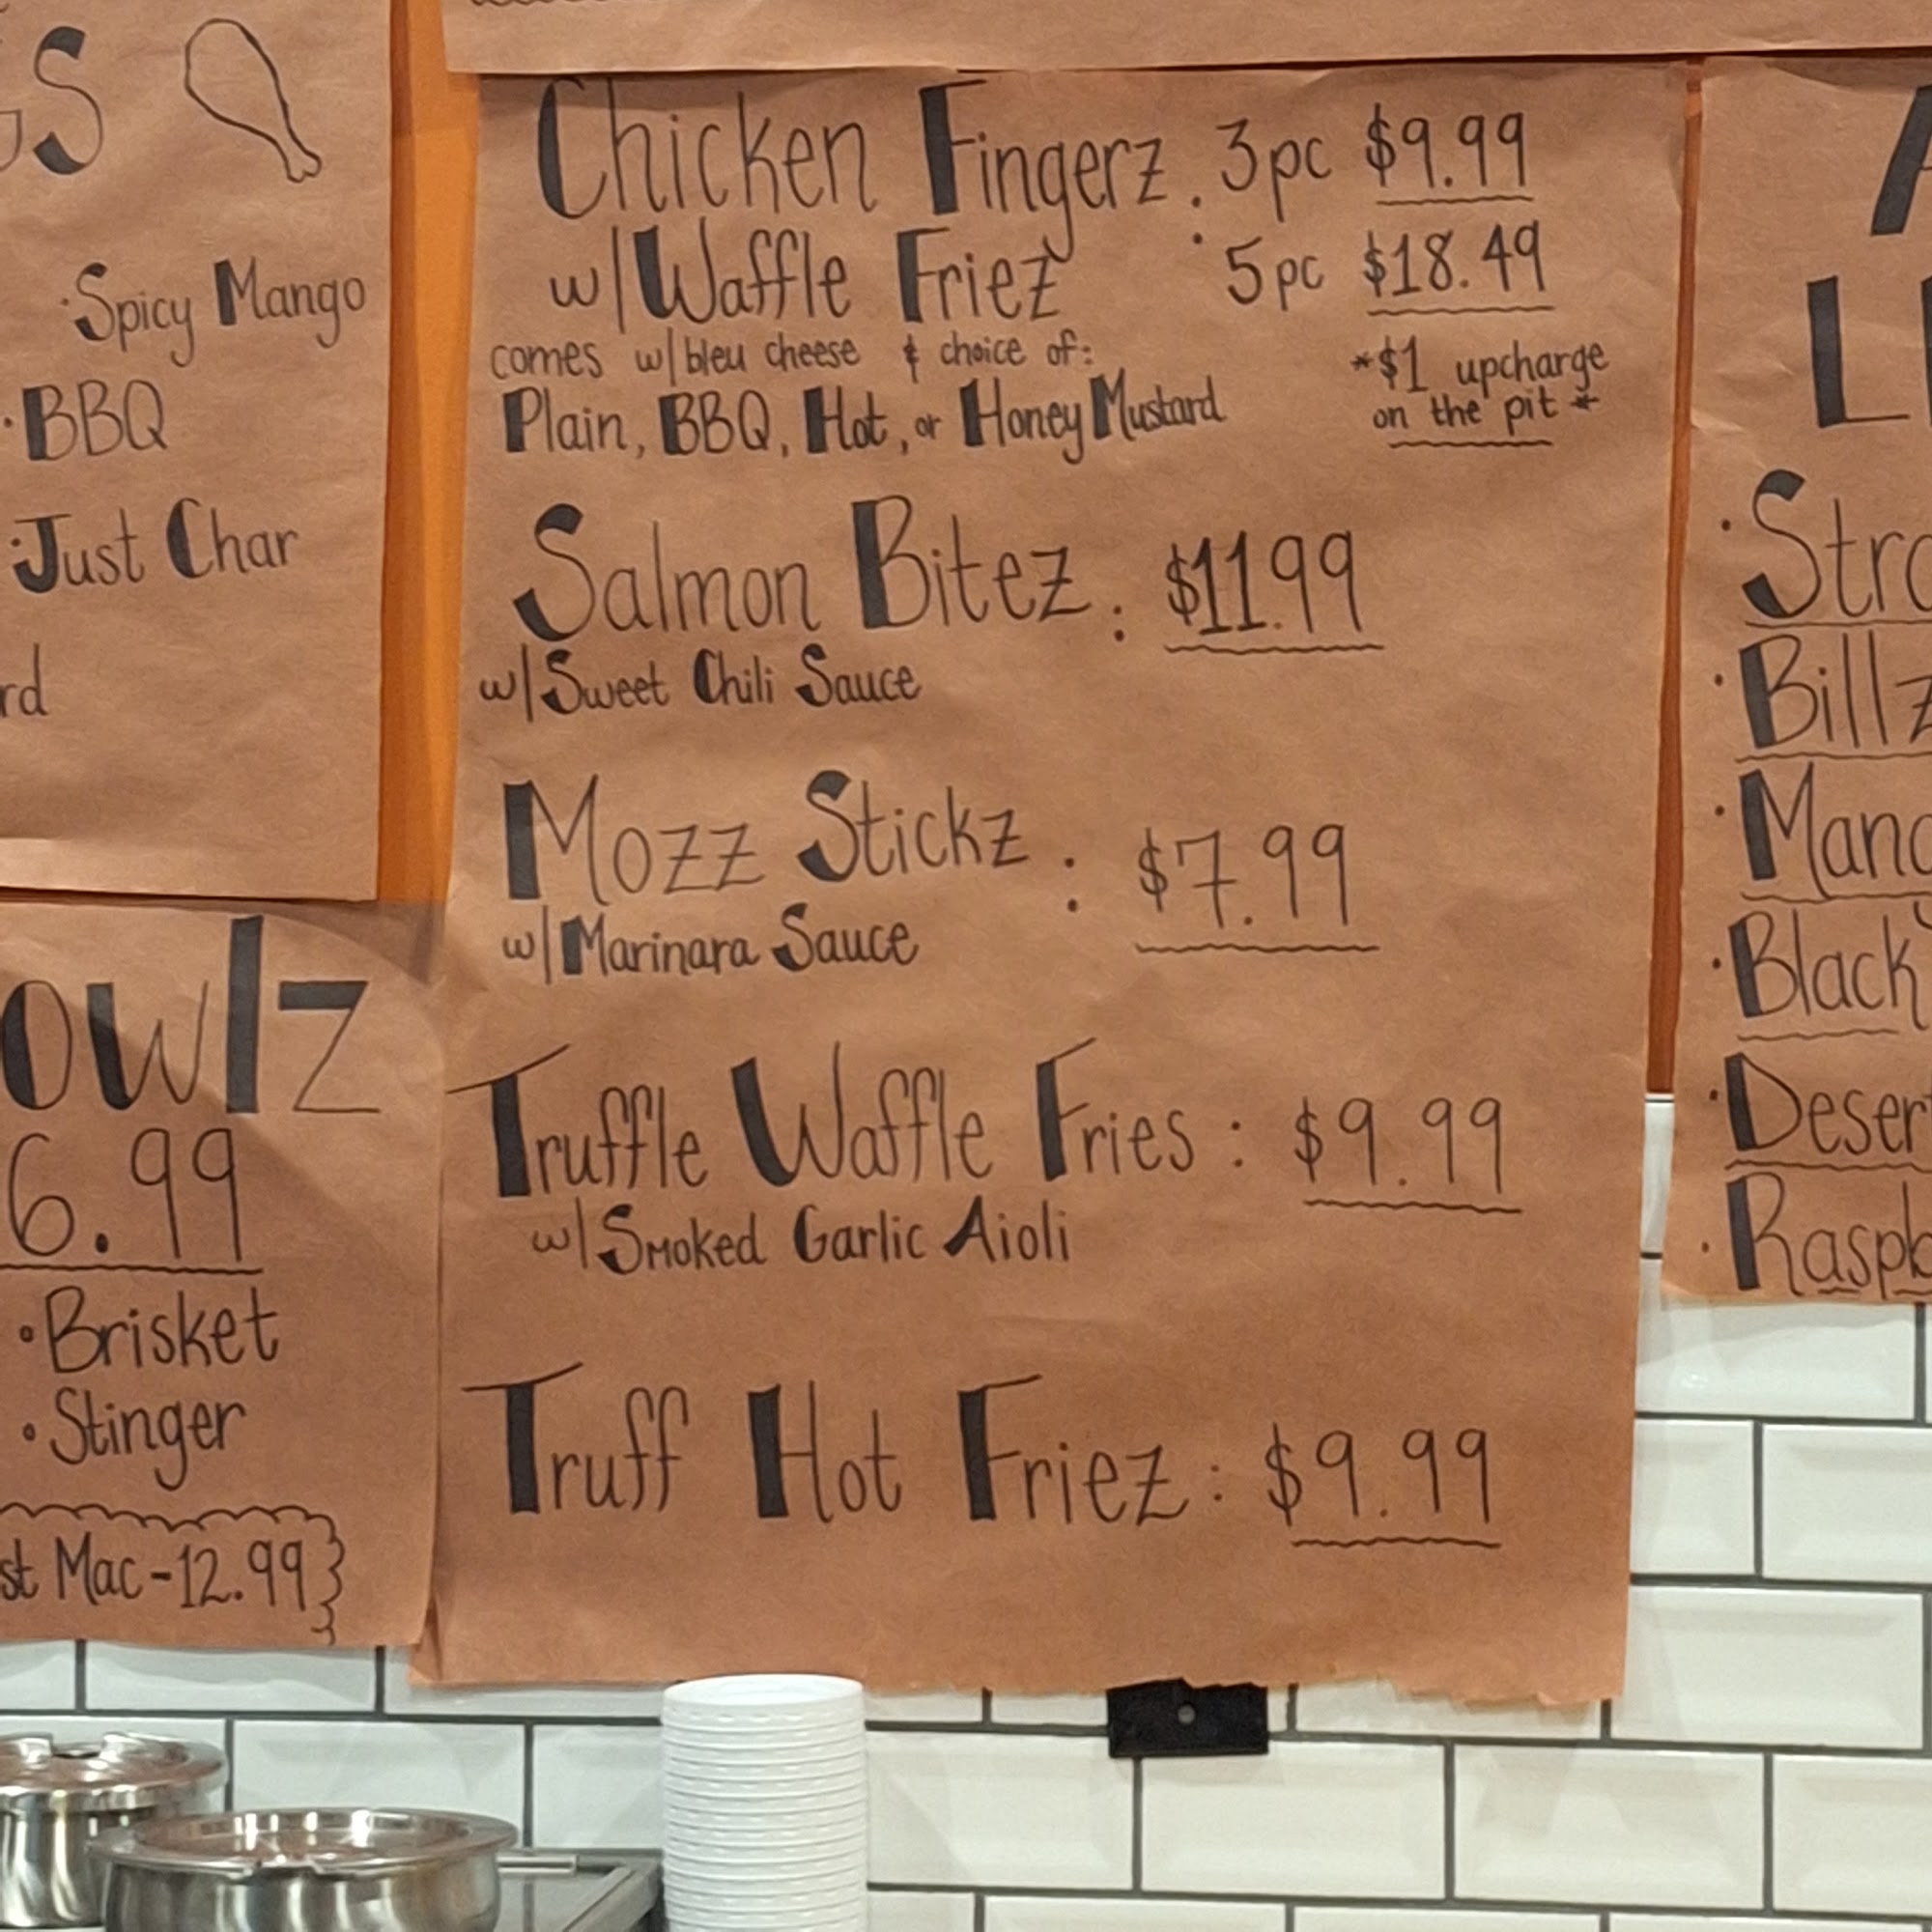 Spicy Mango
BBQ
Just Char
6.99
Brisket
Stinger
Mac - 12.99
Chicken Fingerz : 3pc $9.99
w/ Waffle Friez 5pc $18.49
comes w/ bleu cheese & choice of:
Plain, BBQ, Hot, or Honey Mustard
*$1 upcharge
on the pit*
Salmon Bitez : $11.99
w/ Sweet Chili Sauce
Mozz Stickz : $7.99
w/ Marinara Sauce
Truffle Waffle Fries : $9.99
w/ Smoked Garlic Aioli
Truff Hot Friez : $9.99
Billz
Black